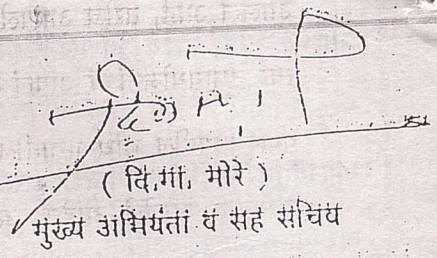 ( वि.मा. मोरे )
मुख्य अभियंता व सह सचिव